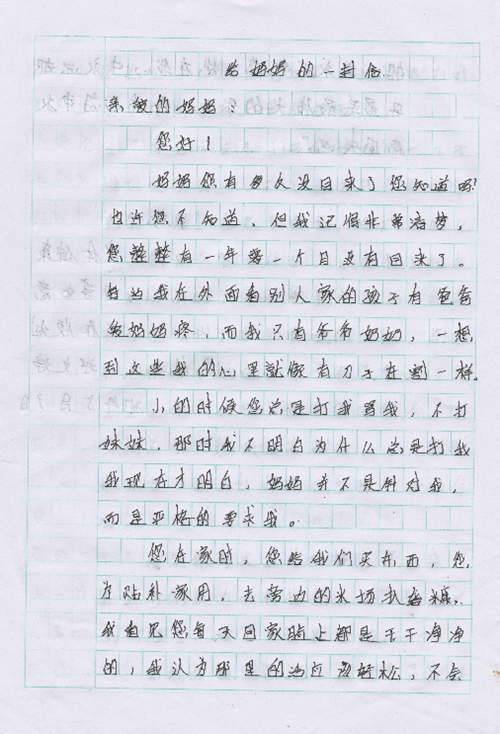 给妈妈的一封信
亲爱的妈妈:
您好!
妈妈您有多久没回来了您知道吗?
也许您不知道,但我记得非常清楚,
您整整有一年零一个月没有回来了。
每当我在外面看别人家的孩子有爸爸
妈妈疼,而我只有爷爷奶奶,一想
到这些我的心里就像有刀子在割一样。
小的时候您总是打我骂我,不打
妹妹,那时我不明白为什么总是打我
我现在才明白,妈妈并不是针对我,
而是严格的要求我。
您在家时,您给我们买东西,您
为贴补家用,去旁边的木场扒
我看见您每天回家脸上都是干干净净
的,我认为那里的活应该轻松,不会